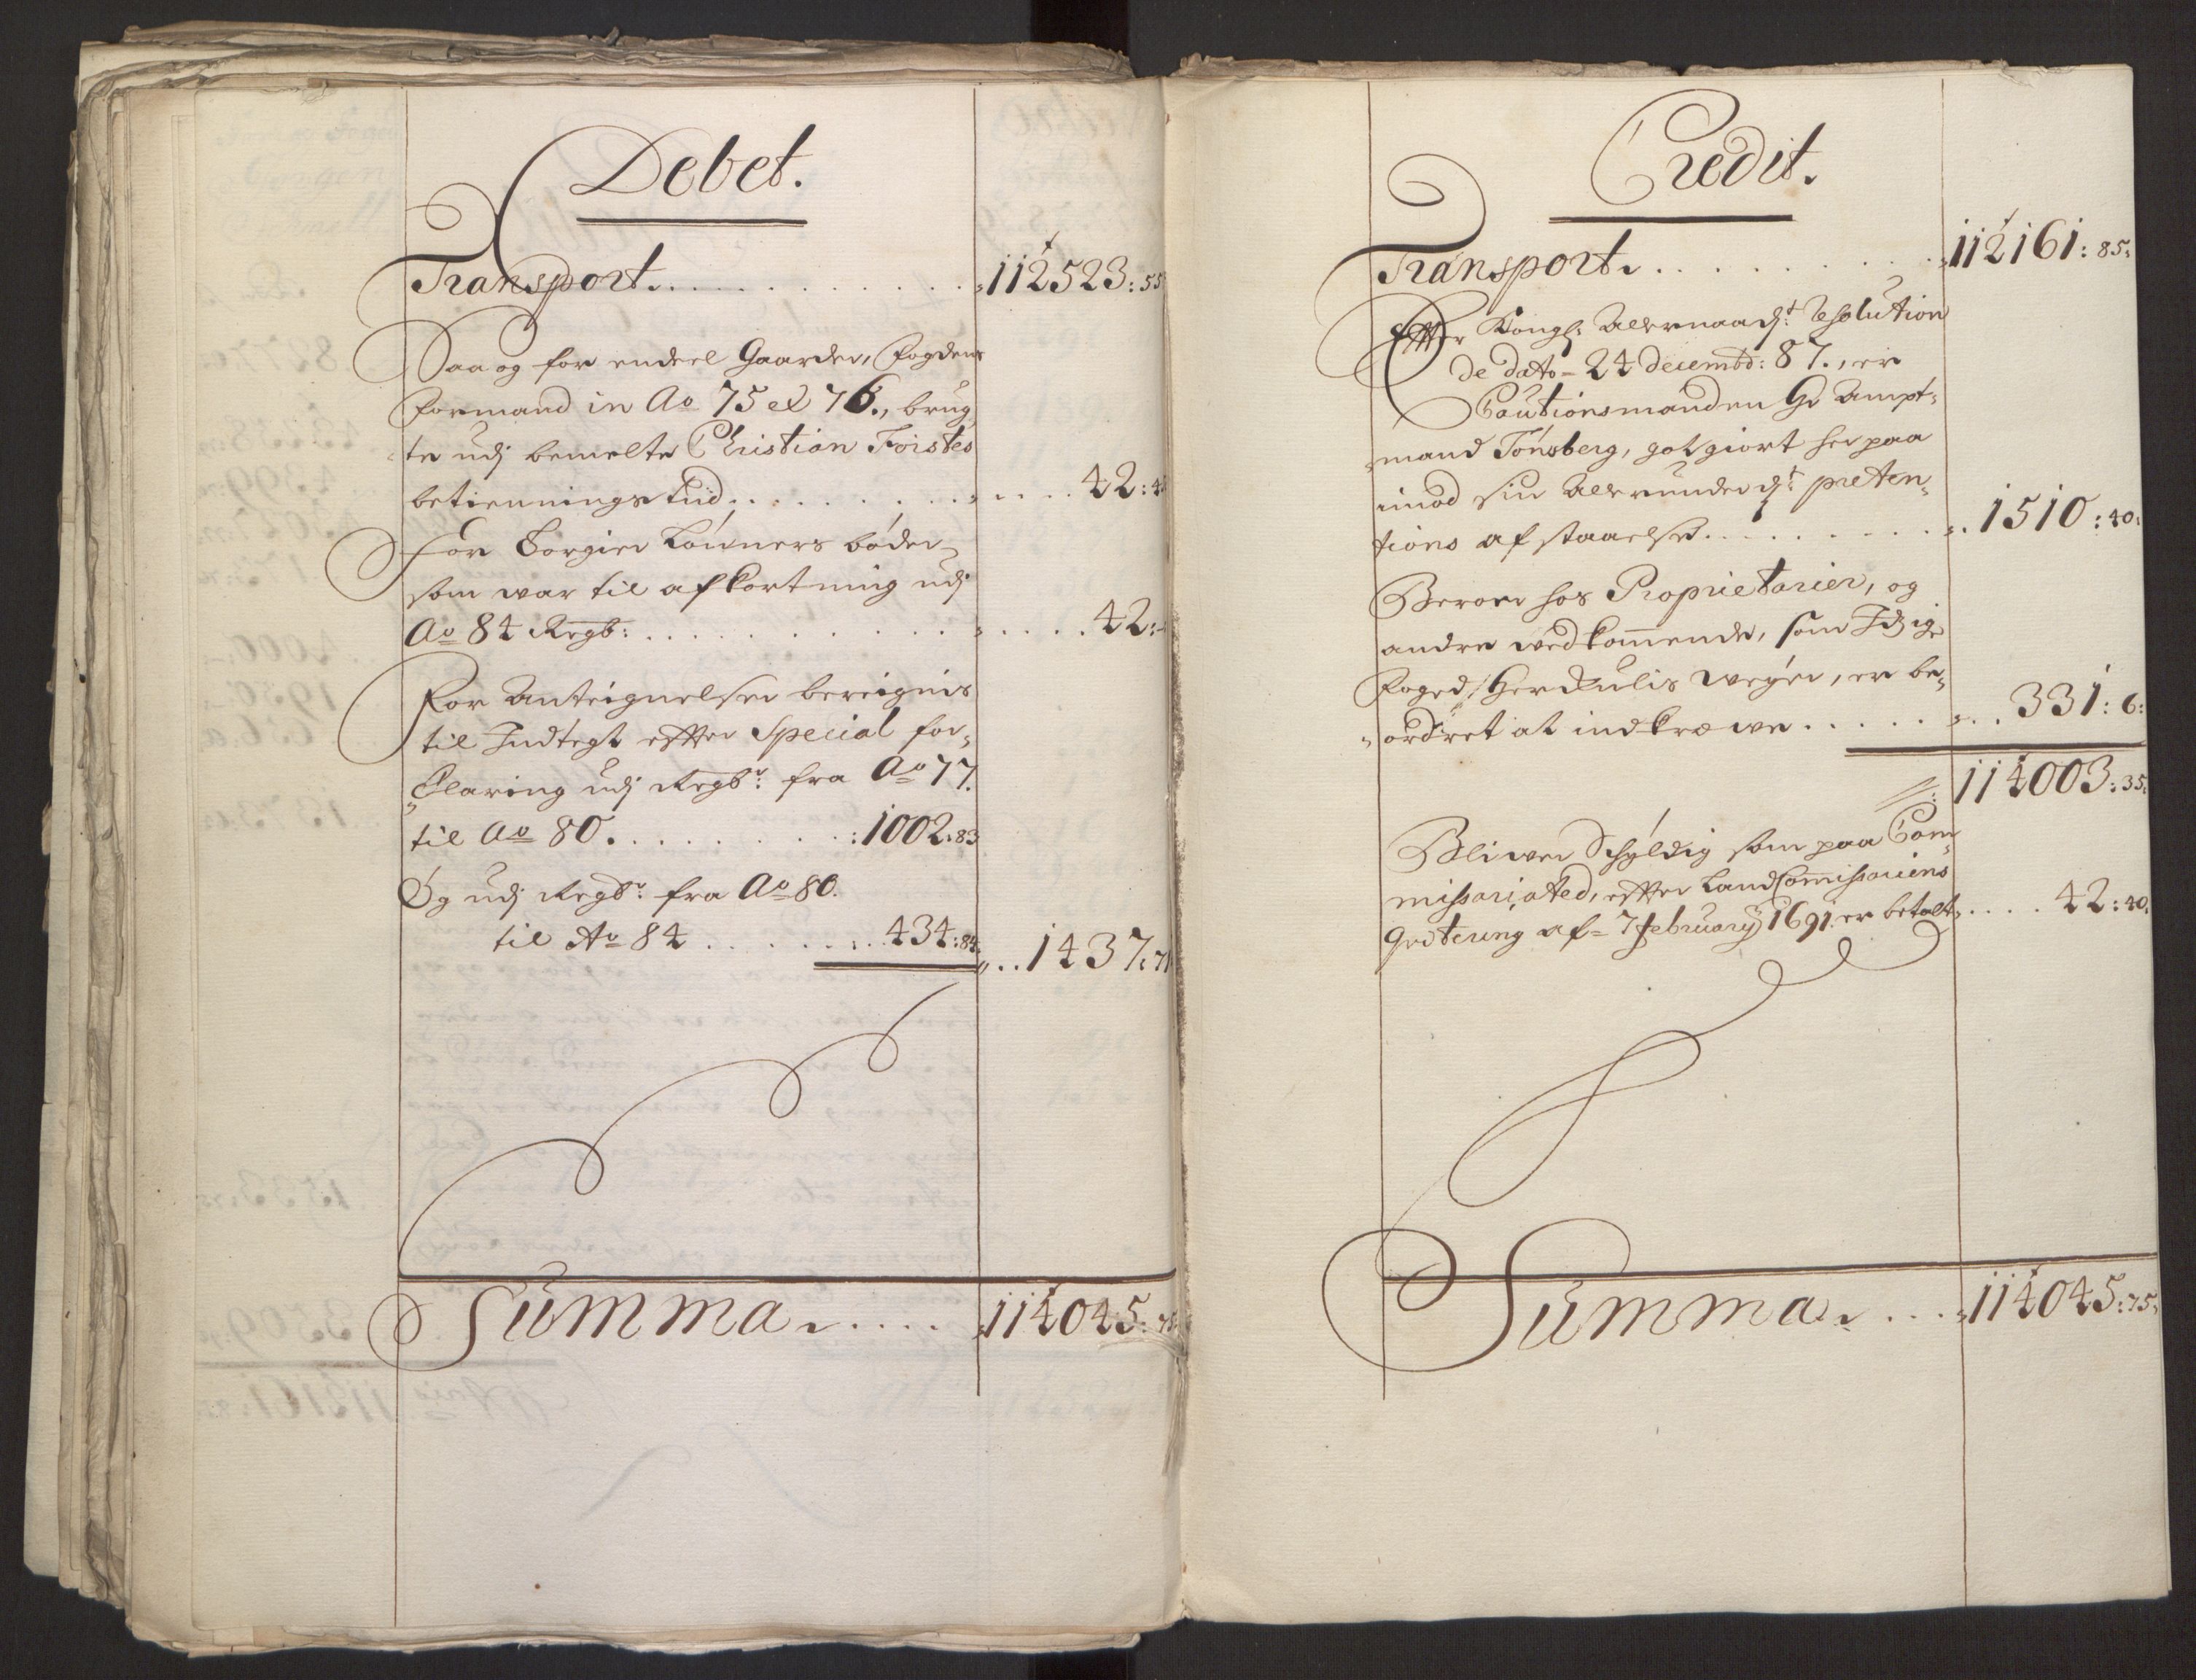 Debet.
Transport. . . . . . . . . . . . 112523:55
Saa og for endeel Gaarder, fogdens
formand in Ao 75 et 76., brug
te udj bemelte Christian Forstes
betiennings tiid. . . . . . . . . . . . . 42:
For Borgier Lønners bøder
som war til afkortning udj
Ao 84 Regb: . . . . . . . . . . . . 42:
For Anteignelser bereignis
til Indtegt effter Special for,,
Claring udj Regbr: fra Ao 77.
til Ao 80. . . . . . . . . :1002:83
Og udj Regbr: fra Ao 80.
til Ao 84 . . . . . . . . 434:84. ,,..1437:71
Summa . . . . 114045:75
Credit.
Transport. . . . . . . . . . . 112161:85:
Effter Kongl: Allernaadst: Resolution
de dato - 24 decembr: 87., er
Cautionsmanden Hr Ampt,,
mand Tønsberg, got giort her paa
imod sin Allerunderdst: præten,,
tions afstaaelse. . . . . . . . . . . 1510:40:
Beroer hos Proprietarier, og
andre wedkommende, som Itzige
foged Herculis Weyer, er be,,
ordret at indkræwe . . . . . . . . 331:6:
114003:35:
Bliwer Schyldig som paa Com,,
missariated, effter Land Commissariens
Qvitering af - 7 february 1691 er betalt. . . . 42:40:
Summa . . . . 114045:75.